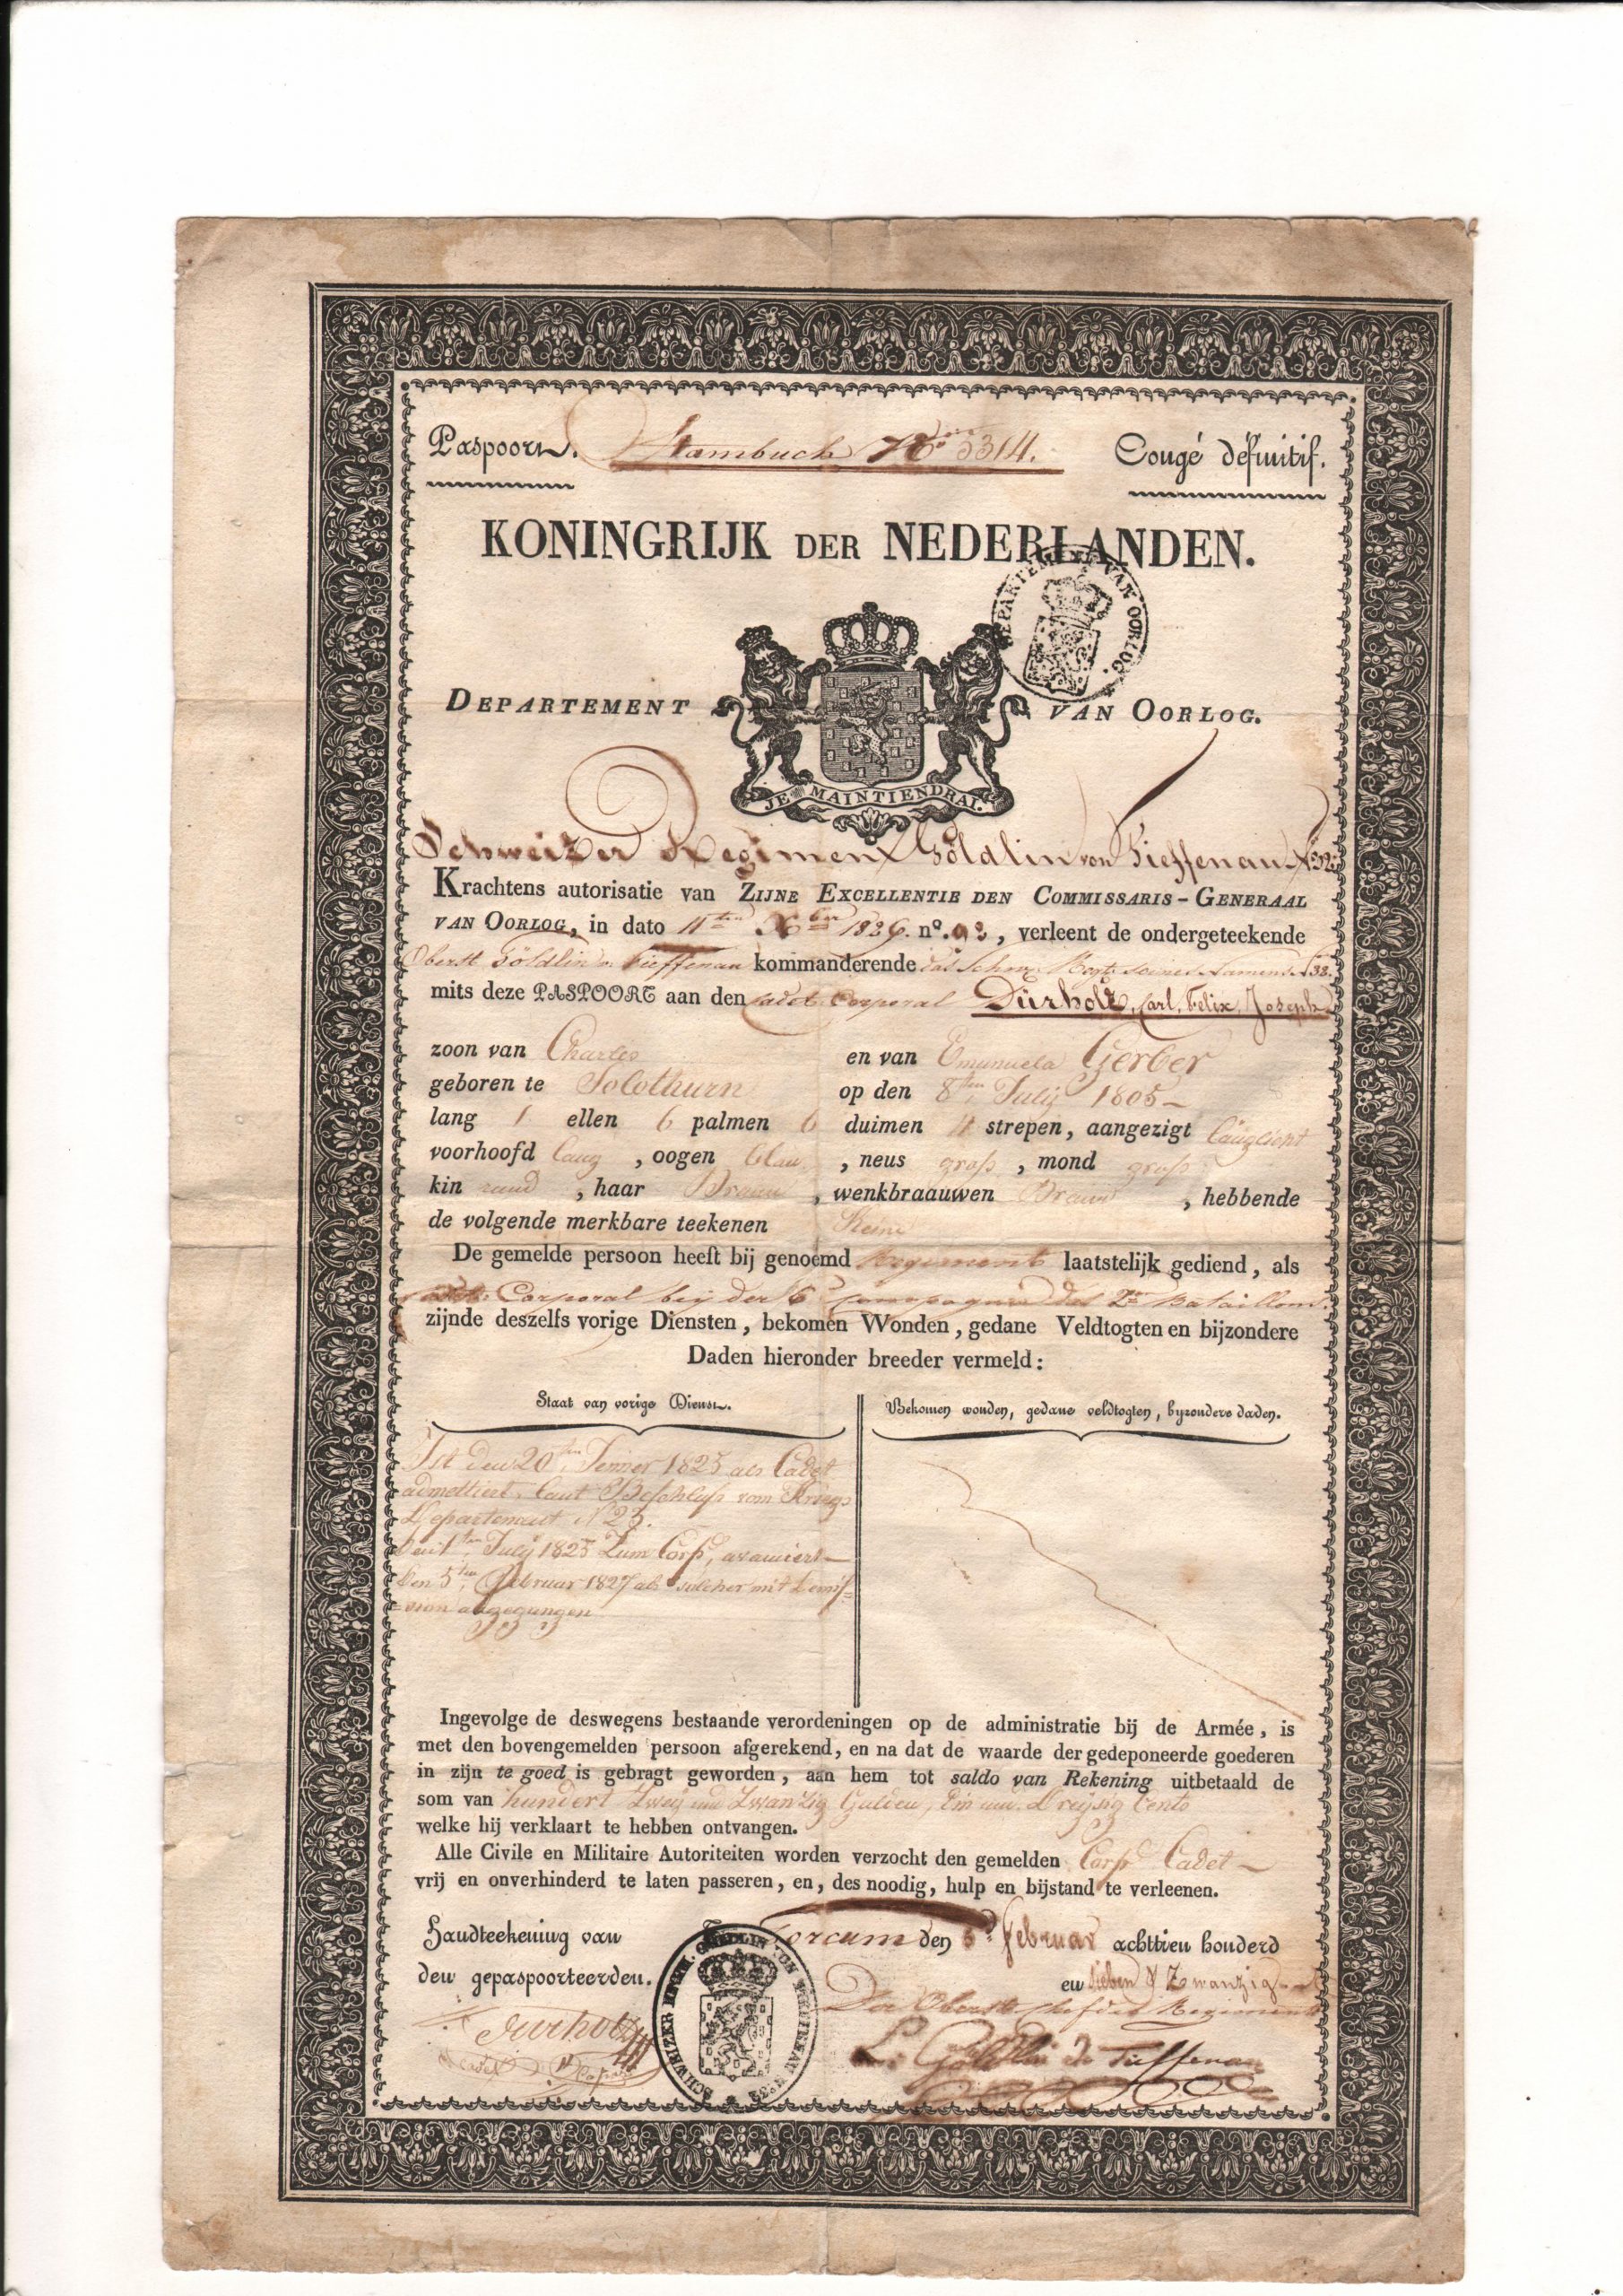 Paspoort. Stambuch No 5314. Congé définitif.
KONINGRIJK DER NEDERLANDEN.
DEPARTEMENT VAN OORLOG.
DEPARTEMENT VAN OORLOG.
JE MAINTIENDRAI.
Schweizer Regiment Göldlin von Tieffenau No 32.
Krachtens autorisatie van ZIJNE EXCELLENTIE DEN COMMISSARIS-GENERAAL
VAN OORLOG, in dato 11ten Xber 1826. no. 92, verleent de ondergeteekende
Oberst Göldlin v. Tieffenau kommanderende das Schw. Regt. seines Namens No 32.
mits deze PASPOORT aan den Cadet Corporal Dürholz, Carl, Felix, Joseph
zoon van Charles en van Emunuela Gerber
geboren te Solothurn op den 8ten July 1805
lang 1 ellen 6 palmen 6 duimen 4 strepen, aangezigt länglicht
voorhoofd lang, oogen blau, neus groß, mond groß
kin rund, haar Braun, wenkbraauwen Braun, hebbende
de volgende merkbare teekenen Keine
De gemelde persoon heeft bij genoemd Regiment laatstelijk gediend, als
Cadet Corporal bey der 6ten Compagnie des 2ten Bataillons.
zijnde deszelfs vorige Diensten, bekomen Wonden, gedane Veldtogten en bijzondere
Daden hieronder breeder vermeld:
Staat van vorige Dienst.
Bekomen wonden, gedane veldtogten, byzondere daden.
Ist den 20ten Jenner 1825 als Cadet
admettiert, laut Beschluß vom Kriegs
Departement No 25.
Den 1ten July 1825 zum Corp. avanciert
Den 5ten Februar 1827 als solcher mit Demis-
=sion abgegangen
Ingevolge de deswegens bestaande verordeningen op de administratie bij de Armée, is
met den bovengemelden persoon afgerekend, en na dat de waarde der gedeponeerde goederen
in zijn te goed is gebragt geworden, aan hem tot saldo van Rekening uitbetaald de
som van hundert Zwey und Zwanzig Gulden, Ein und Dreysig Cents
welke hij verklaart te hebben ontvangen.
Alle Civile en Militaire Autoriteiten worden verzocht den gemelden Corp. Cadet
vrij en onverhinderd te laten passeren, en, des noodig, hulp en bijstand te verleenen.
Handteekening van
den gepaspoorteerden.
Gorcum den 5ten Februar achttien honderd
en sieben & Zwanzig
Der Oberst Chef des Regiments
L. Göldlin de Tieffenau
Durholz
Cadet
SCHWEIZER REGM. GOELDLIN VON TIEFFENAU No 32